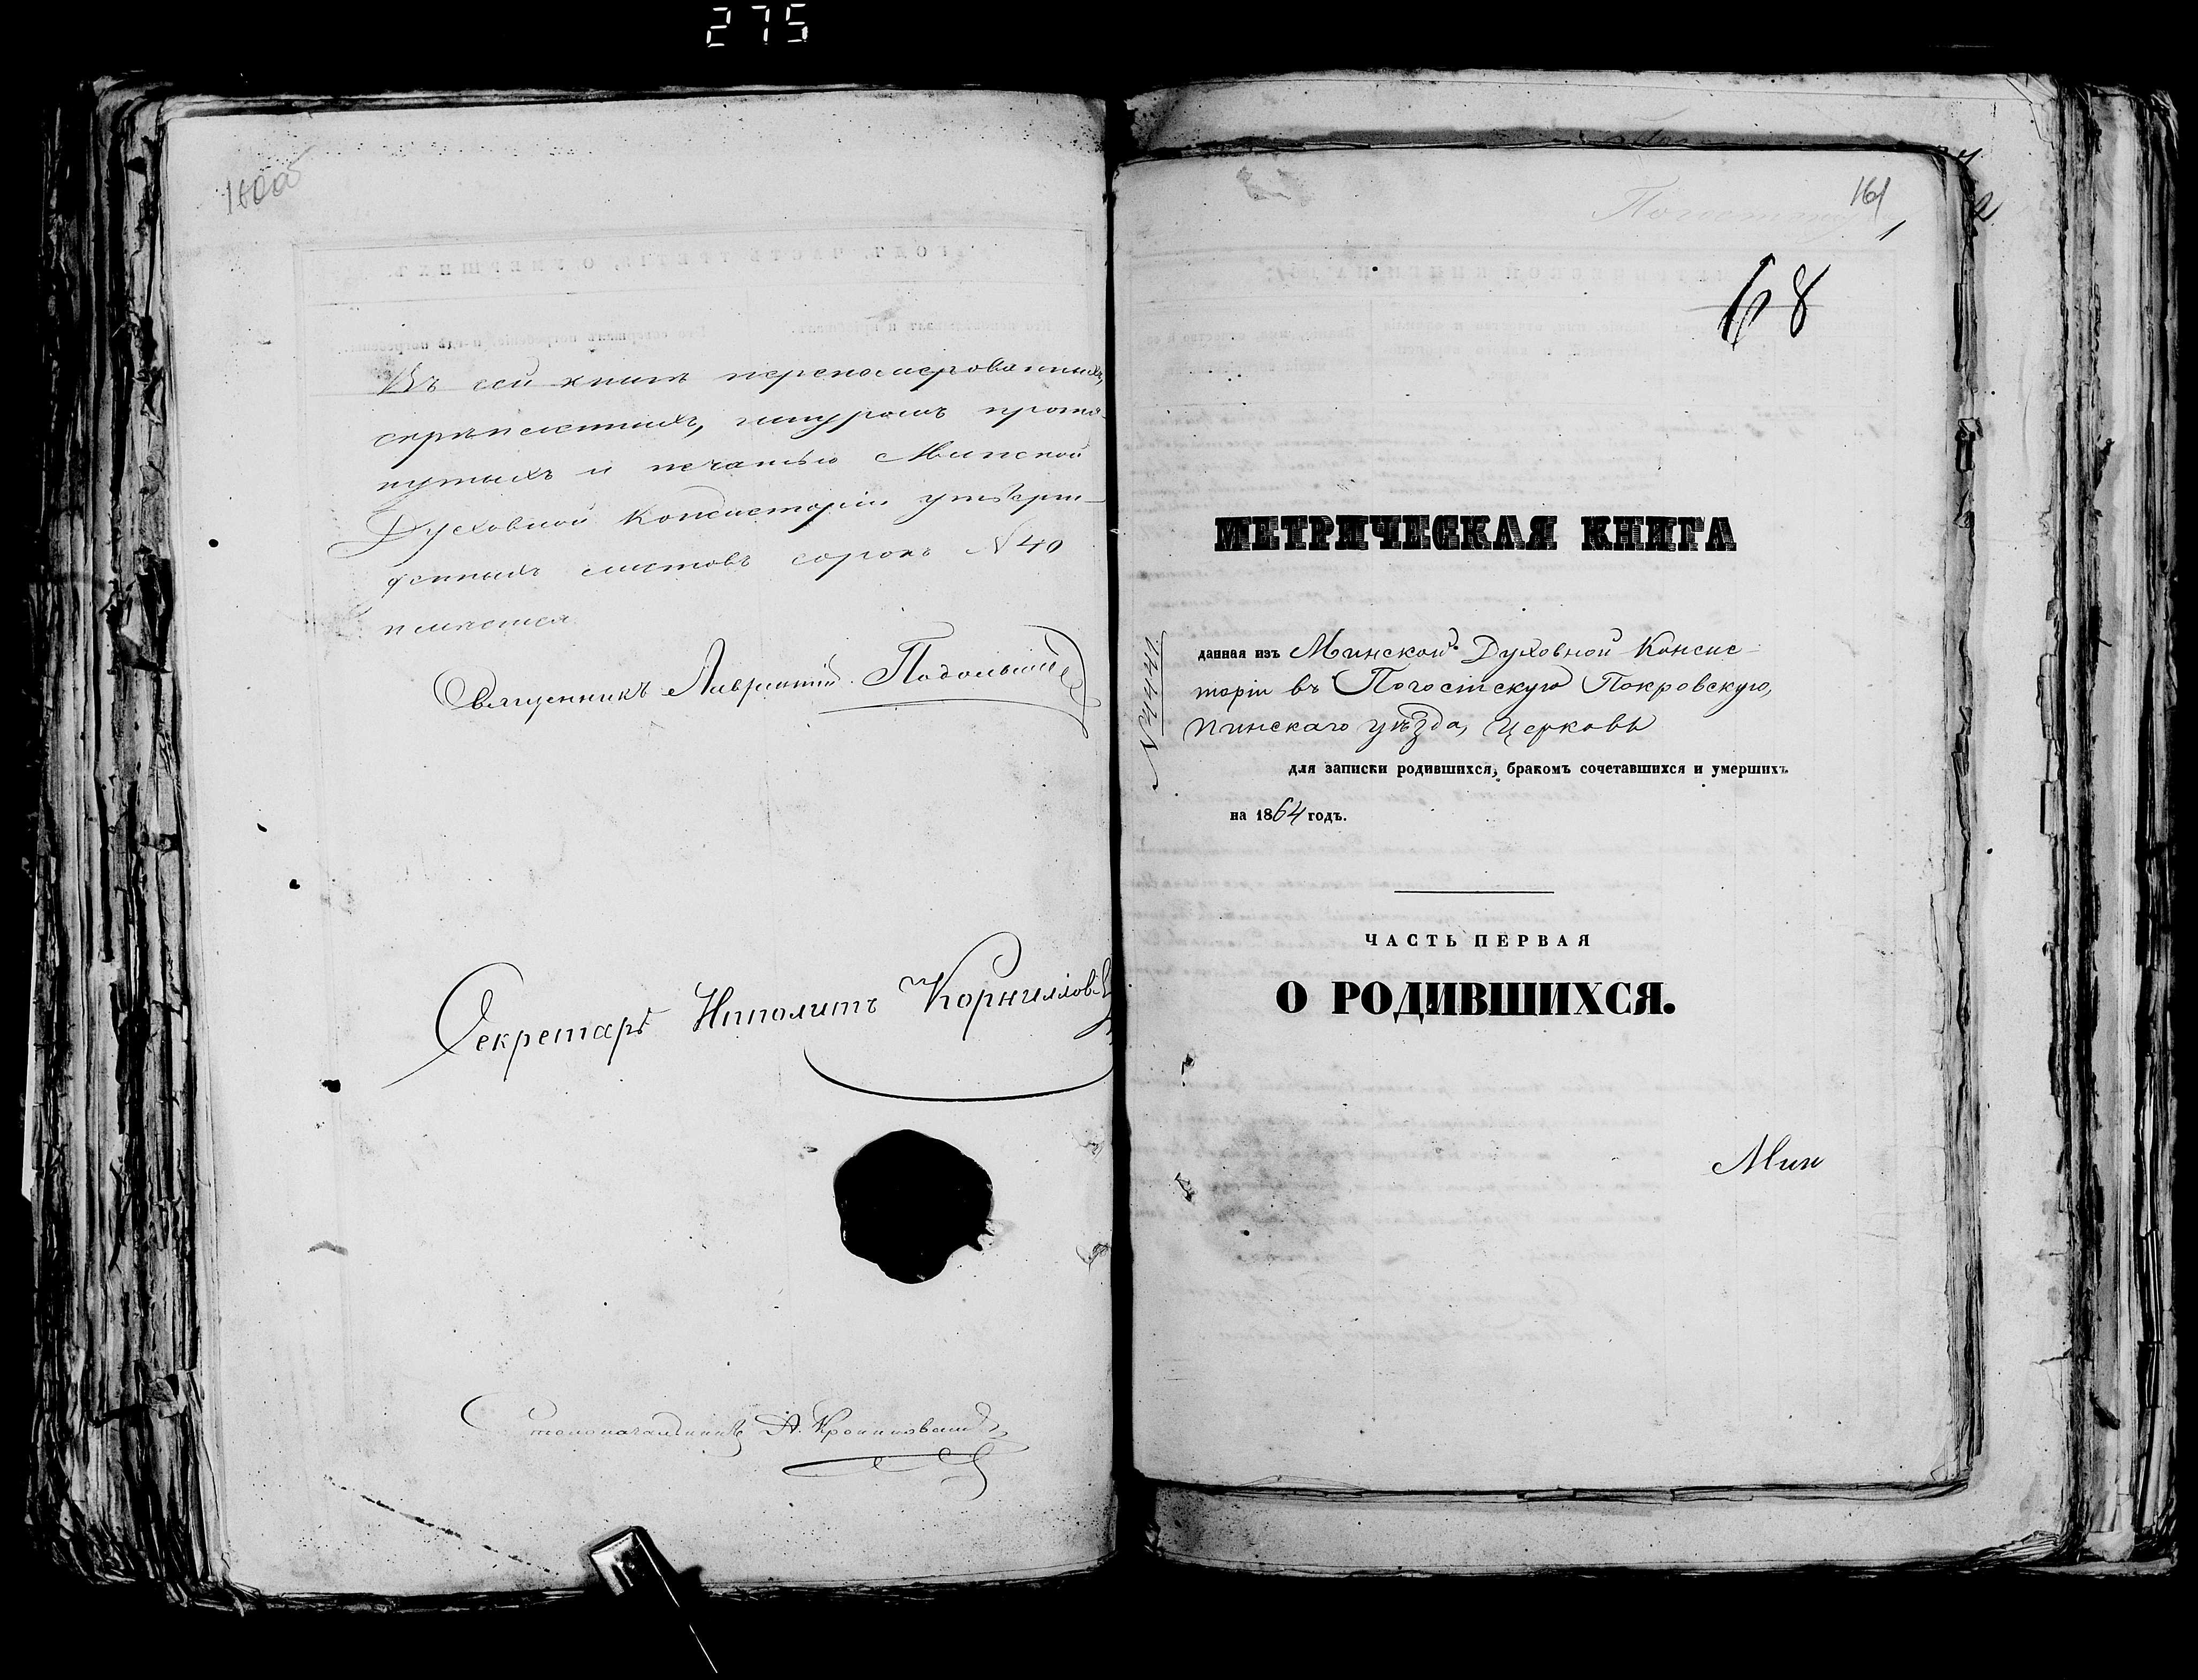 275
160об
Въ сей книгѣ перенумерованныхъ,
скрѣпленныхъ, шнуромъ протя-
нутыхъ и печатью Минской
Духовной Консисторіи утверж-
денныхъ листовъ сорокъ №40
имѣется
Священникъ Лаврентій Подольскій
Секретарь Ипполитъ
Столоначальникъ А.
161
1
2
68
МЕТРИЧЕСКАЯ КНИГА
данная изъ Минской Духовной Консис-
торіи въ Погостскую Покровскую,
Пинскаго уѣзда, церковь
для записки родившихся, бракомъ сочетавшихся и умершихъ
на 1864 годъ.
№ 4441.
ЧАСТЬ ПЕРВАЯ
О РОДИВШИХСЯ.
Мин